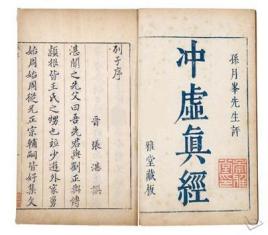 孫月峯先生評
冲虛眞經
雅堂藏板
列子序
晉 張湛 撰
湛聞之先父曰吾先君與劉正輿傅
頴根皆王氏之甥也並少遊外家舅
始周始周從兄正宗輔嗣皆好集文